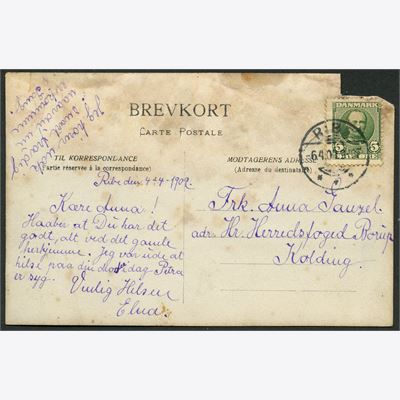 BREVKORT
CARTE POSTALE
TIL KORRESPONDANCE
(Partie réservée à la correspondance)
MODTAGERENS ADRESSE
(Adresse du destinataire)
DANMARK
5 5
Ribe den 4-4-1909.
Kære Anna!
Haaber at Du har det
godt, alt ved det gamle
herhjemme. Jeg var ude at
hilse paa dag Petra
er syg. Venlig Hilsen
Elna.
Frk. Anna
adr. Hr. Herredsfoged Borup
Kolding.